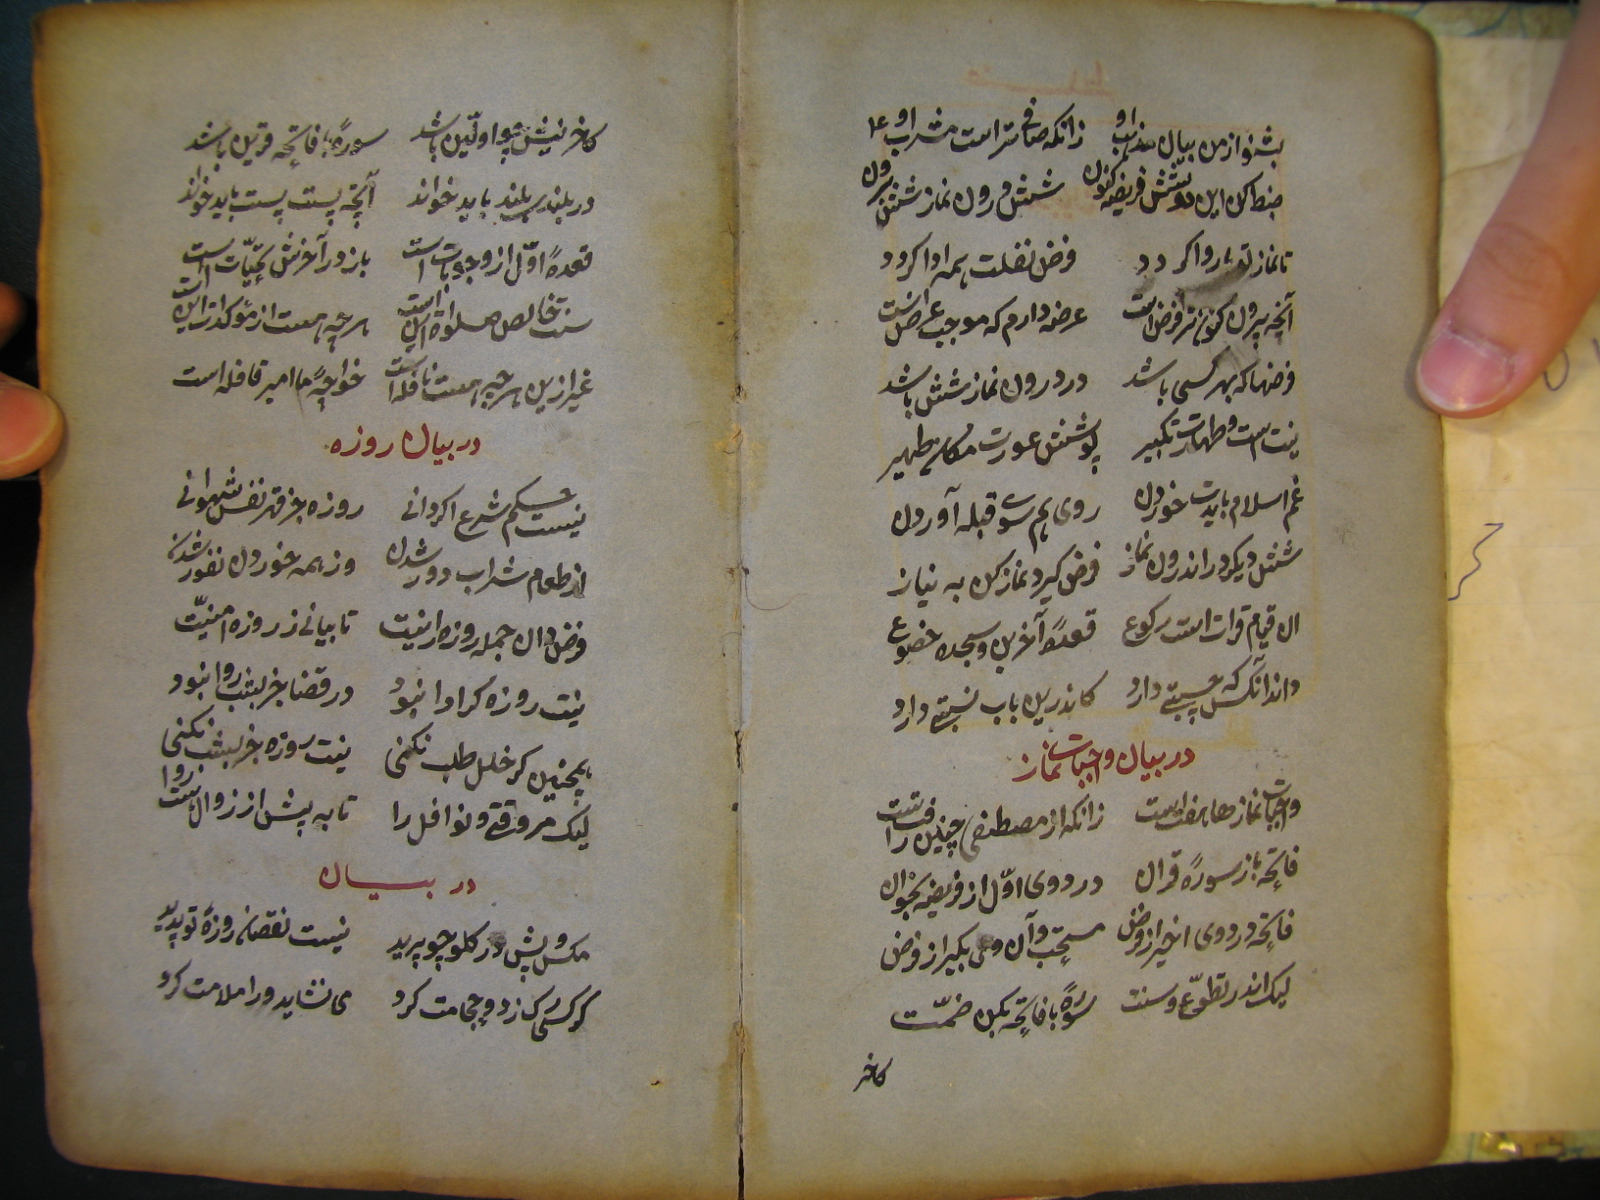 بشنو از من بیان مذهب او زانکه صافی تر است مشرب او
ضبط کن این شش فریضه کنون شش درون نماز شش بیرون
تا نماز تو با روا کردد فرض نفلت همه ادا کردد
آنچه بیرون کنون فرض است عرضه دارم که موجب عرض است
فرضها که بهر کسی باشد در درون نماز شش باشد
نیت است و طهارت تکبیر پوشش عورت مکان طهیر
غم اسلام بایدت خوردن روی هم سوی قبله آوردن
شش دیکر در اندرون نماز فرض کیرد نماز کن به نیاز
ان قیام قرات است رکوع قعدهٔ آخرین و سجده خضوع
داند آنکس که حسبتی دارد کاندرین باب نسبتی دارد
در بیان واجبات نماز
واجبات نمازها هفت است زانکه از مصطفی چنین رفت است
فاتحه باز سورهٔ قران در دوی اول از فریضه بخوان
فاتحه در دوی اخیر از فرض مستحب آن بکیر از فرض
لیک اندر تطوع و سنت سورهٔ با فاتحه بکن ضمت
کاخر
کاخرینش چو اولین باشد سورهٔ با فاتحه قرین باشد
در بلندی بلند باید خواند آنچه پست پست باید خواند
قعدهٔ اول از وجوبات است باز در آخرش تحیات است
سنت خالص صلواة این است هر چه هست از مؤکدات این است
غیر ازین هر چه هست نافله است خواجهٔ ما امیر قافله است
در بیان روزه
نیست حکم شرع اکر دانی روزه جز قهر نفس شهوانی
از طعام شراب دور شدن وز همه خوردن نفور شدن
فرض دان جمله روزه را نیت تا بیابی ز روزه امنیت
نیت روزه کر ادا نبود در قضا جز بشب روا نبود
همچنین کر خلل طلب نکنی نیت روزه جز بشب نکنی
لیک مر وقتی و نوافل را تا به پیش از زوال هست روا
در بیان
مکس و پش در کلو چو پرید نیست نقصان روزهٔ تو پدید
کر کسی رک زد و حجامت کرد می نشاید ورا ملامت کرد